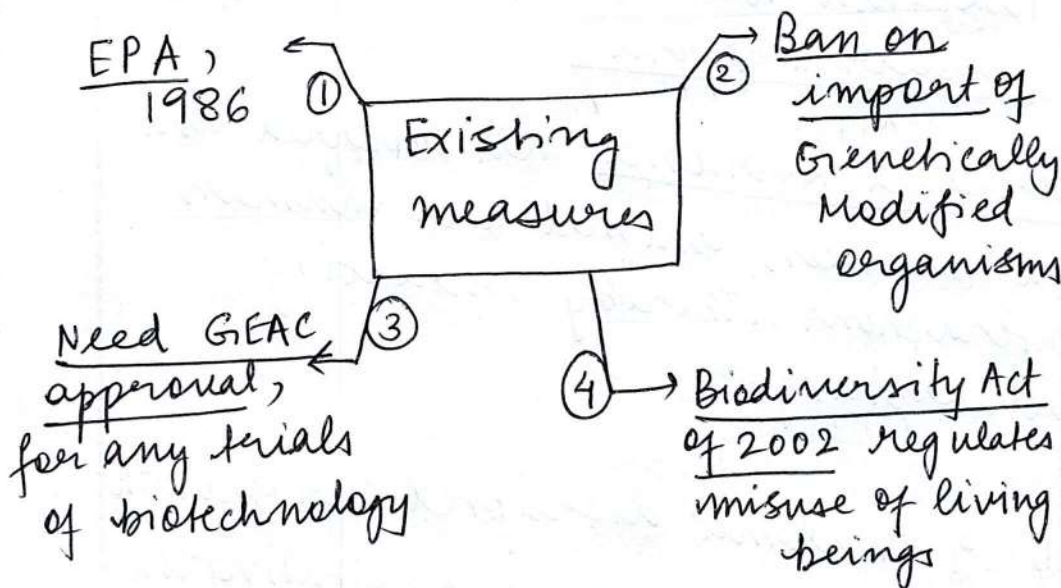 Existing
measures
①
EPA,
1986
②
Ban on
import of
Genetically
Modified
organisms
③
Need GEAC
approval,
for any trials
of biotechnology
④
Biodiversity Act
of 2002 regulates
misuse of living
beings